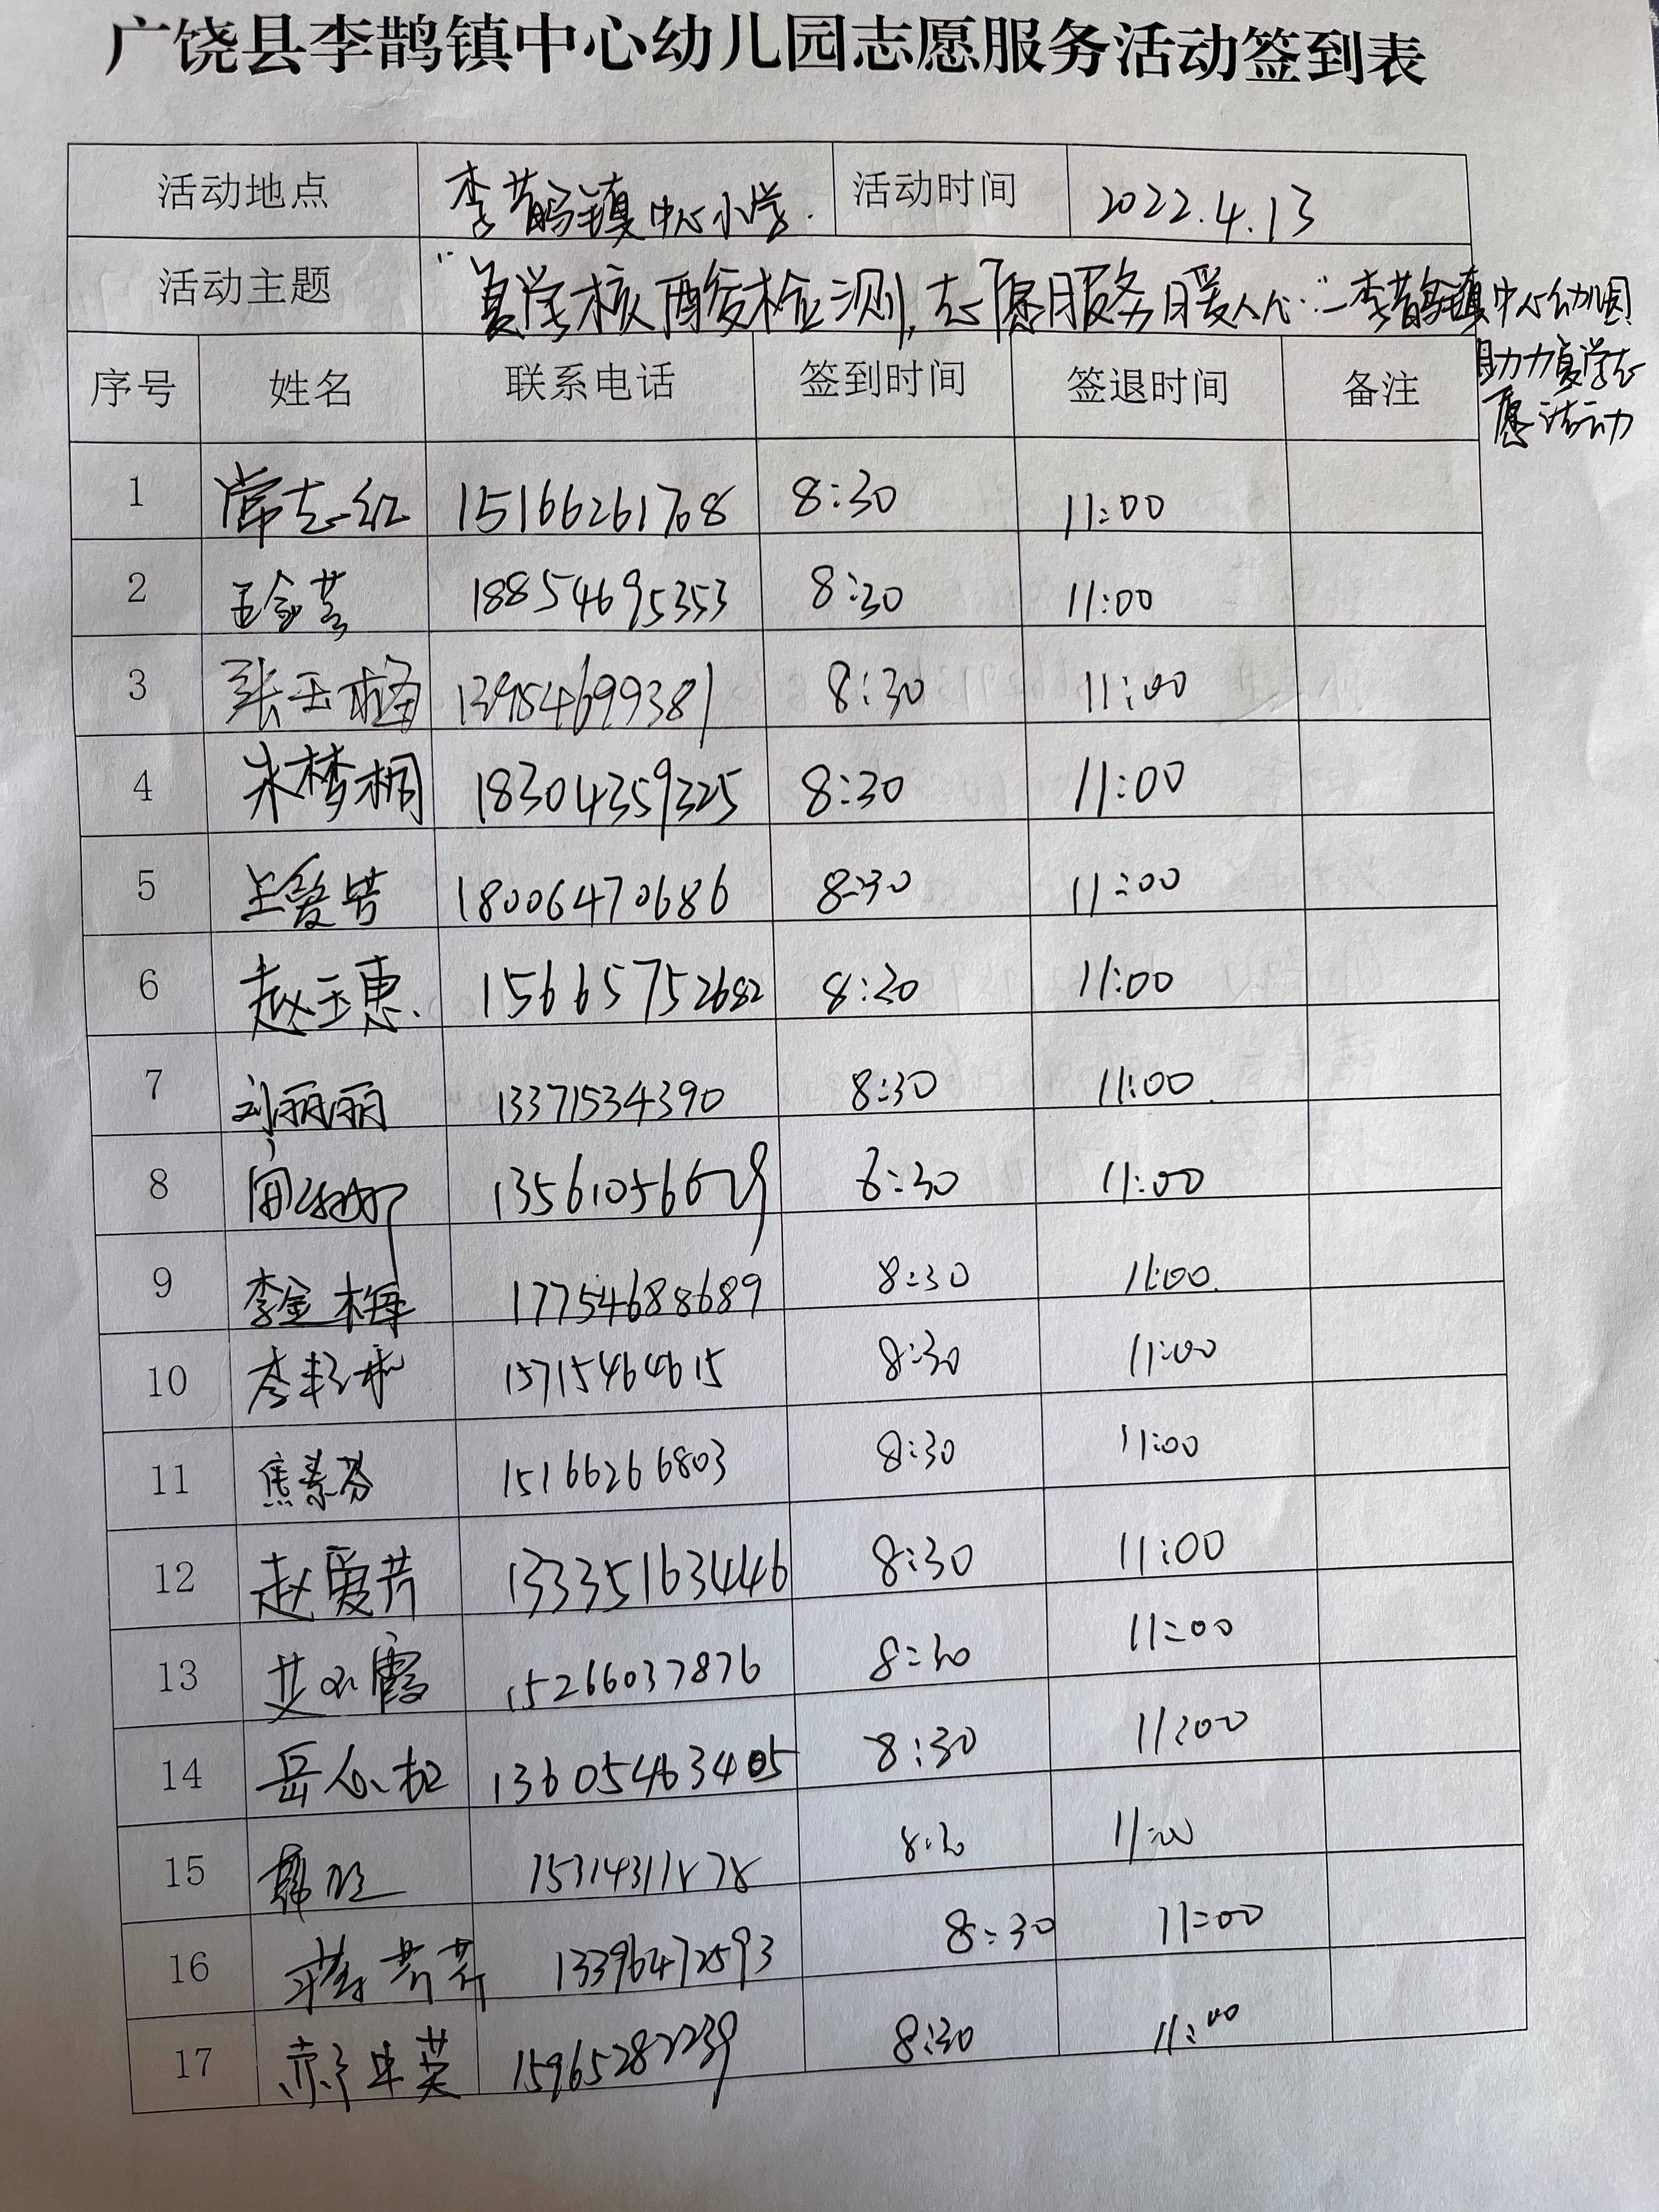 广饶县李鹊镇中心幼儿园志愿服务活动签到表
活动地点 李鹊镇中心小学. 活动时间 2022.4.13
活动主题 "复学核酸检测,志愿服务暖人心"—李鹊镇中心幼儿园
助力复学志
愿活动
序号 姓名 联系电话 签到时间 签退时间 备注
1 常志红 15166261768 8:30 11:00
2 18854695353 8:30 11:00
3 张玉梅 13954699381 8:30 11:00
4 朱梦桐 18304359325 8:30 11:00
5 王爱芳 18006470686 8:30 11:00
6 赵玉惠. 15665752682 8:30 11:00
7 刘丽丽 13371534390 8:30 11:00
8 8:30 11:00
9 李金梅 17754688689 8:30 11:00
10 15715464615 8:30 11:00
11 焦素芬 15166266803 8:30 11:00
12 赵爱芳 13335163446 8:30 11:00
13 艾小霞 15266037876 8:30 11:00
14 岳 13605463405 8:30 11:00
15 8:30 11:00
16 芳芳 13396472593 8:30 11:00
17 英 15965282239 8:30 11:00